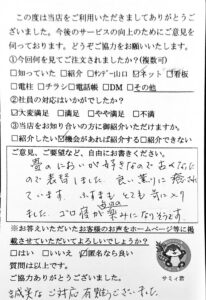 この度は当店をご利用いただきましてありがとうご
ざいました。今後のサービスの向上のためにご意見を
伺っております。どうぞご協力をお願いいたします。
①今回何を見てご注文されましたか?(複数可)
□知っていた □紹介 □サンデー山口 ☑ネット □看板
□電柱 □チラシ□電話帳 □DM □その他
②社員の対応はいかがでしたか?
☑大変満足 □満足 □やや満足 □不満
③当店をお知り合いの方に御紹介いただけますか。
□紹介したい☑機会があれば紹介する□紹介できない
ご意見、ご要望など、自由にお書きください。
畳のにおいが好きなので
で表替しました。良い薫りに癒され
ています。ふすまもとても気に入り
ました。
※お答えいただいたお客様のお声をホームページ等に
掲載させていただいてよろしいでしょうか?
□はい □いいえ ☑匿名なら良い
質問は以上です。
ご協力ありがとうございました。
誠実なご対応有難うございました。
サミィ君